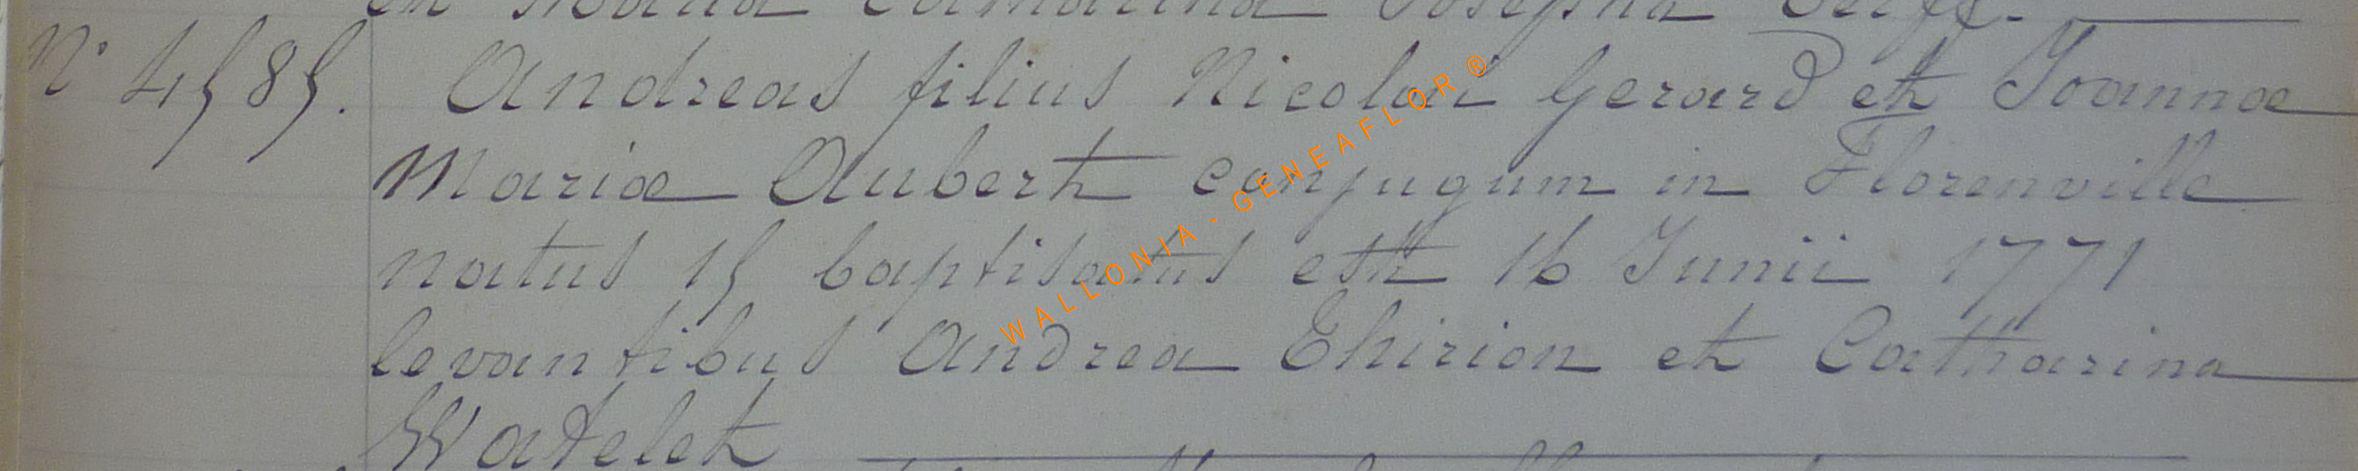 et Maria Catharina Josepha
N° 4585. Andreas filius Nicolai Gerard et Joannæ
Mariæ Aubert conjugum in Florenville
natus 15 baptisatus est 16 Junii 1771
levantibus Andrea Thirion et Catharina
Watelet
WALLONIA - GENEAFLOR ®